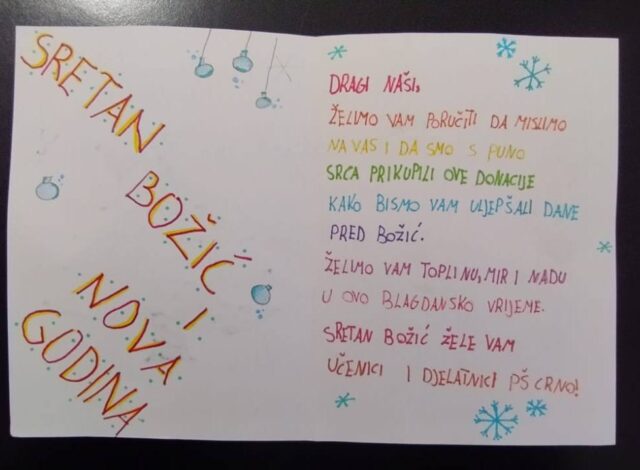 SRETAN
BOŽIĆ I
NOVA
GODINA
DRAGI NAŠI,
ŽELIMO VAM PORUČITI DA MISLIMO
NA VAS I DA SMO S PUNO
SRCA PRIKUPILI OVE DONACIJE
KAKO BISMO VAM ULJEPŠALI DANE
PRED BOŽIĆ.
ŽELIMO VAM TOPLINU, MIR I NADU
U OVO BLAGDANSKO VRIJEME.
SRETAN BOŽIĆ ŽELE VAM
UČENICI I DJELATNICI PŠ CRNO!